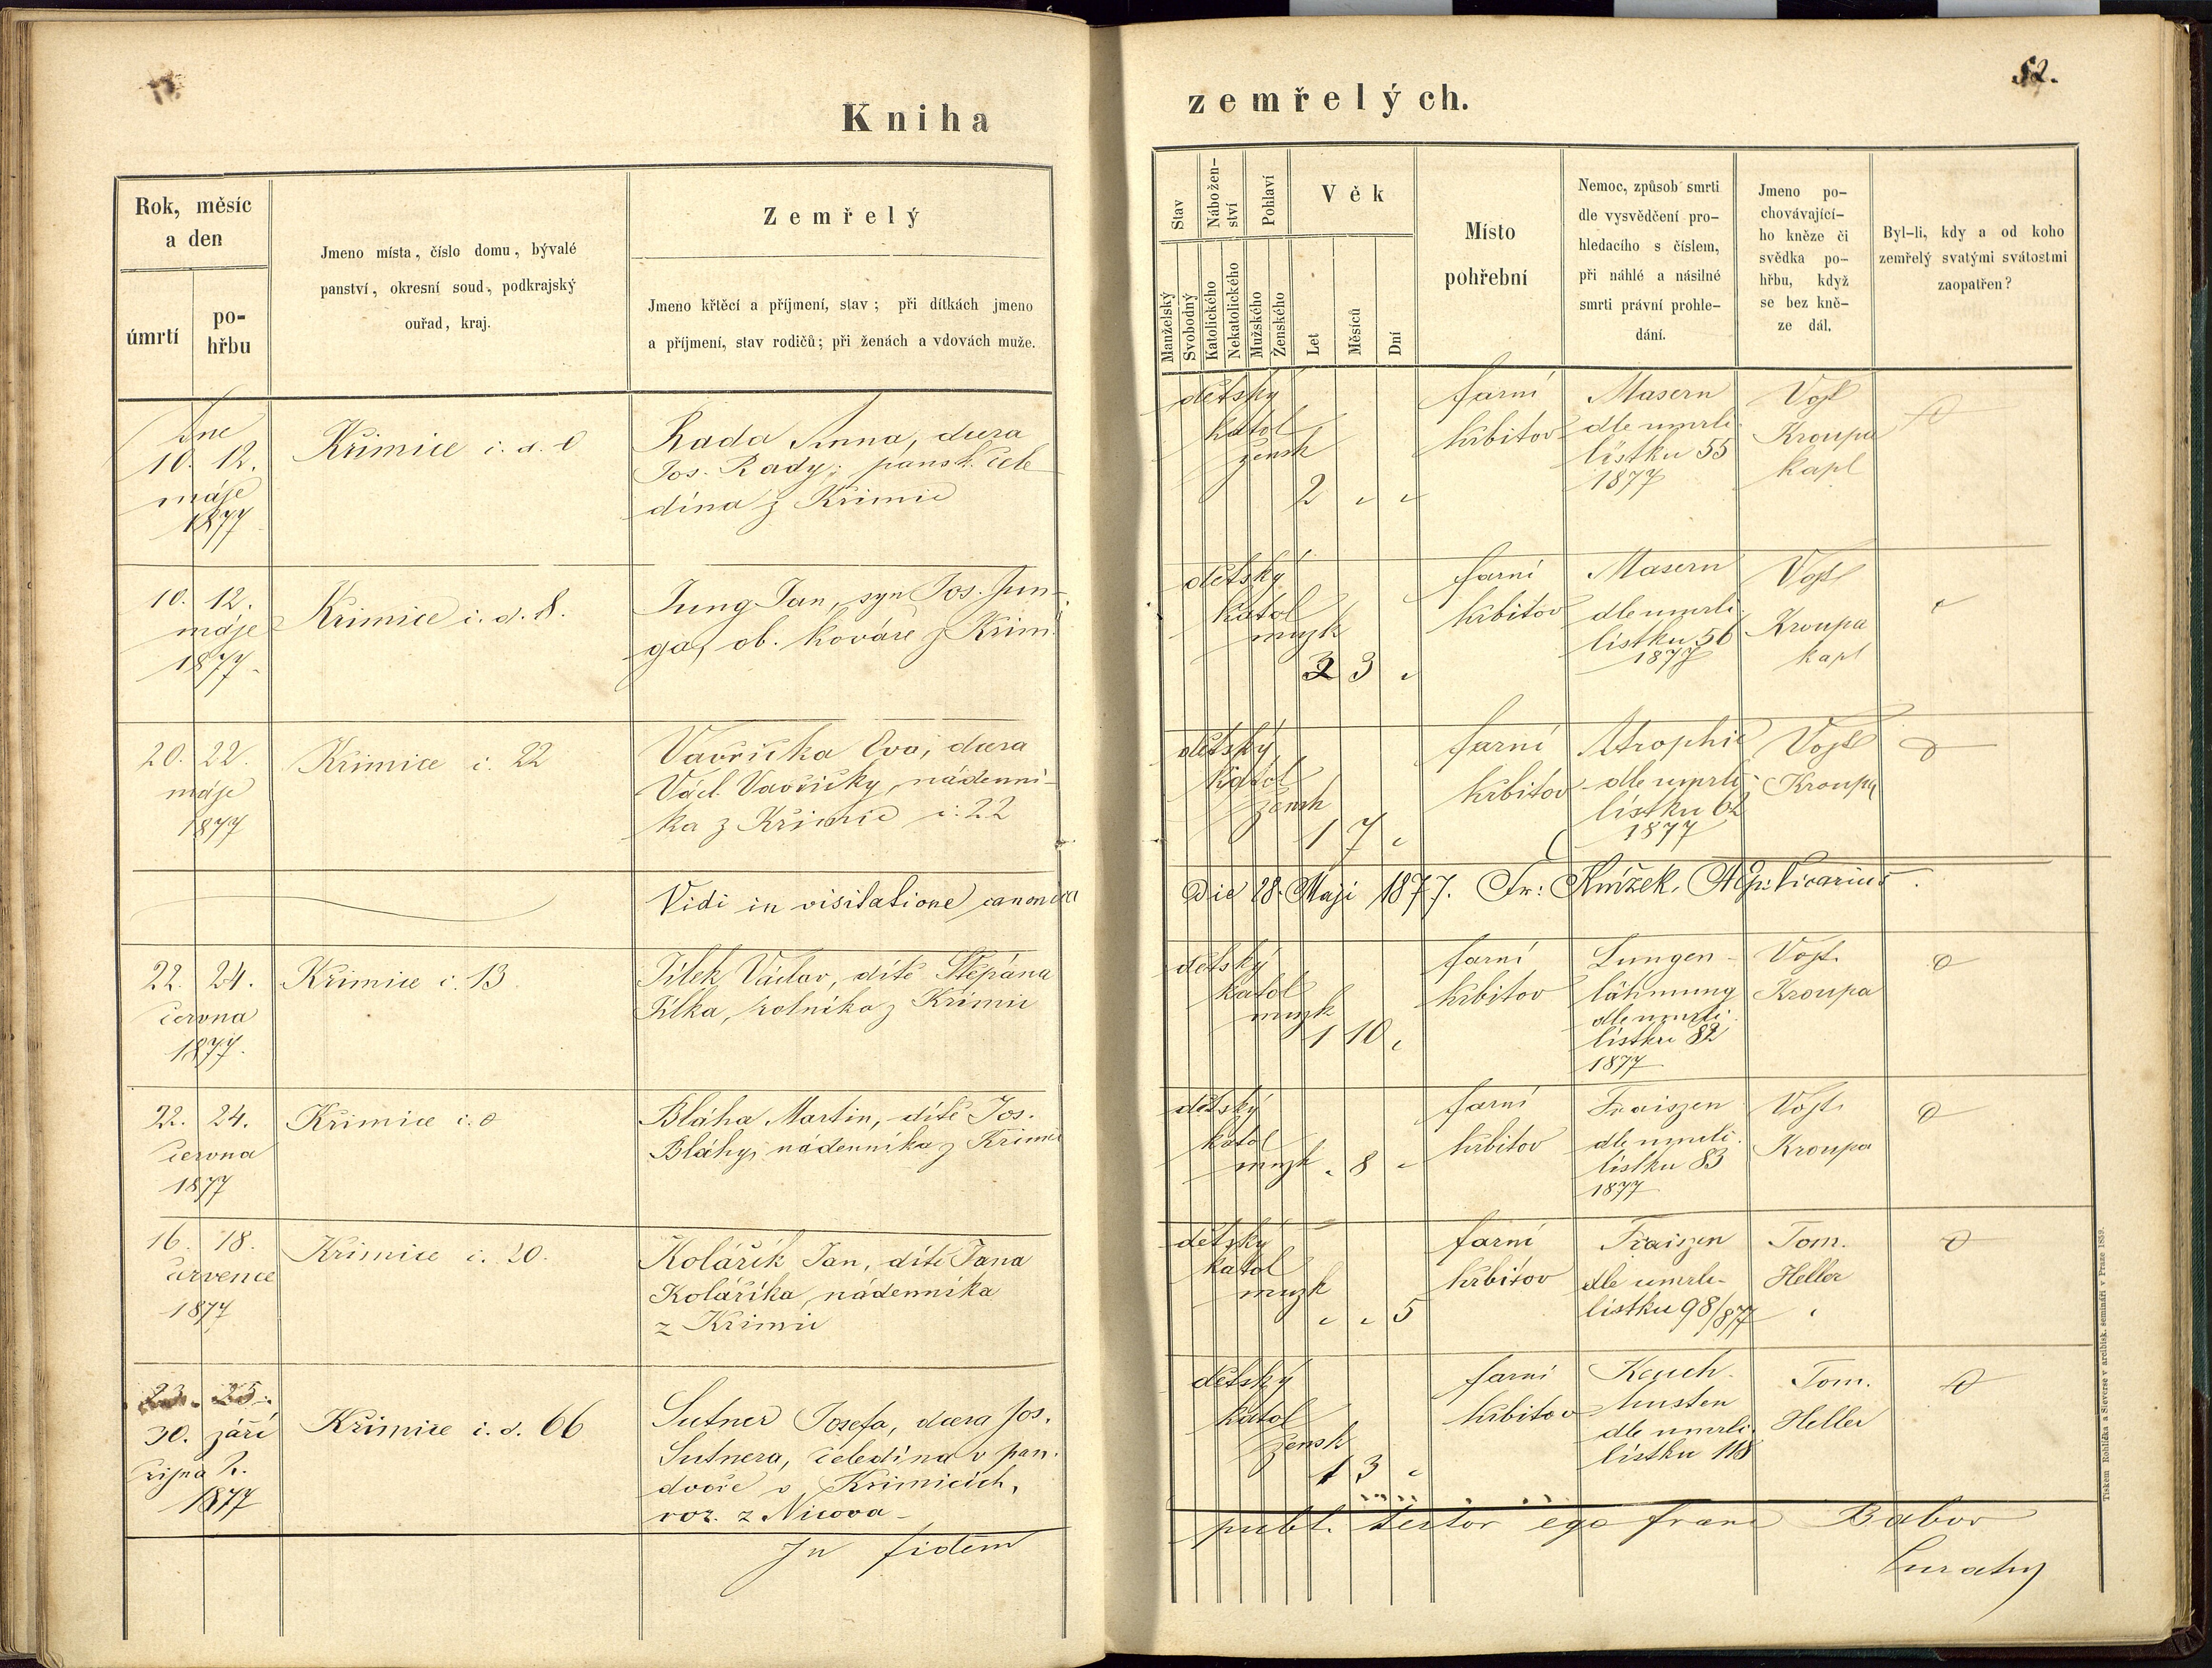 52.
Kniha
zemřelých.
Rok, měsíc
a den
úmrtí
po-
hřbu
Jmeno místa, číslo domu, bývalé
panství, okresní soud, podkrajský
ouřad, kraj.
Zemřelý
Jmeno křtěcí a příjmení, stav; při dítkách jmeno
a příjmení, stav rodičů; při ženách a vdovách muže.
Stav
Nábožen-
ství
Pohlaví
Věk
Manželský
Svobodný
Katolického
Nekatolického
Mužského
Ženského
Let
Měsíců
Dní
Místo
pohřební
Nemoc, způsob smrti
dle vysvědčení pro-
hledacího s číslem,
při náhlé a násilné
smrti právní prohle-
dání.
Jmeno po-
chovávající-
ho kněze či
svědka po-
hřbu, když
se bez kně-
ze dál.
Byl-li, kdy a od koho
zemřelý svatými svátostmi
zaopatřen?
Dne
10. 12.
máje
1877
Křimice č. d. 0
Rada Anna, dcera
Jos. Rady, pansk. čele
dína z Křimic
dětský
katol
žensk
2 " "
farní
hřbitov
Masern
dle umrlč.
lístku 55
1877
Vojt
Kroupa
kapl
10. 12.
máje
1877
Křimice č. d. 8.
Jung Jan, syn Jos. Jun-
ga, ob. kováře z Křim.
dětský
katol
mužk
3 "
farní
hřbitov
Masern
dle umrlč.
lístku 56
1877
Vojt
Kroupa
kapl
20. 22.
máje
1877
Křimice č. 22
Vavřička Eva, dcera
Václ. Vavřičky, nádenní-
ka z Křimic č. 22
dětský
katol
žensk
1 7 "
farní
hřbitov
Atrophie
dle umrlč.
lístku 62
1877
Vojt
Kroupa
Vidi in visitatione canonica
Die 28. Maji 1877. Fr: Knížek, AEp. Vicarius.
22. 24.
června
1877.
Křimice č. 13
Jílek Václav, dítě Štěpána
Jílka, rolníka z Křimic
dětský
katol
mužk
1 10 "
farní
hřbitov
Lungen-
lähmung
dle umrlč.
lístku 82
1877
Vojt.
Kroupa
22. 24.
června
1877
Křimice č. 0
Bláha Martin, dítě Jos.
Bláhy, nádenníka z Křimic
dětský
katol
mužk " 8 "
farní
hřbitov
Fraiszen
dle umrlč.
lístku 83
1877
Vojt.
Kroupa
16. 18.
července
1877
Křimice č. 20.
Kolářík Jan, dítě Jana
Koláříka, nádenníka
z Křimic
dětský
katol
mužk
" " 5
farní
hřbitov
Fraiszen
dle umrlč.
lístku 98/877
Tom.
Heller
23. 25.
30. září
října 2.
1877
Křimice č. d. 66
Sutner Josefa, dcera Jos.
Sutnera, čeledína v pan.
dvoře v Křimicích,
roz. z Nicova
dětský
katol
žensk
1 3 "
farní
hřbitov
Keuch-
husten
dle umrlč.
lístku 118
Tom.
Heller
In fidem
publ. testor ego Franc Babor
Curatus
Tiskem Rohlíčka a Sieverse v arcibisk. semináři v Praze 1859.